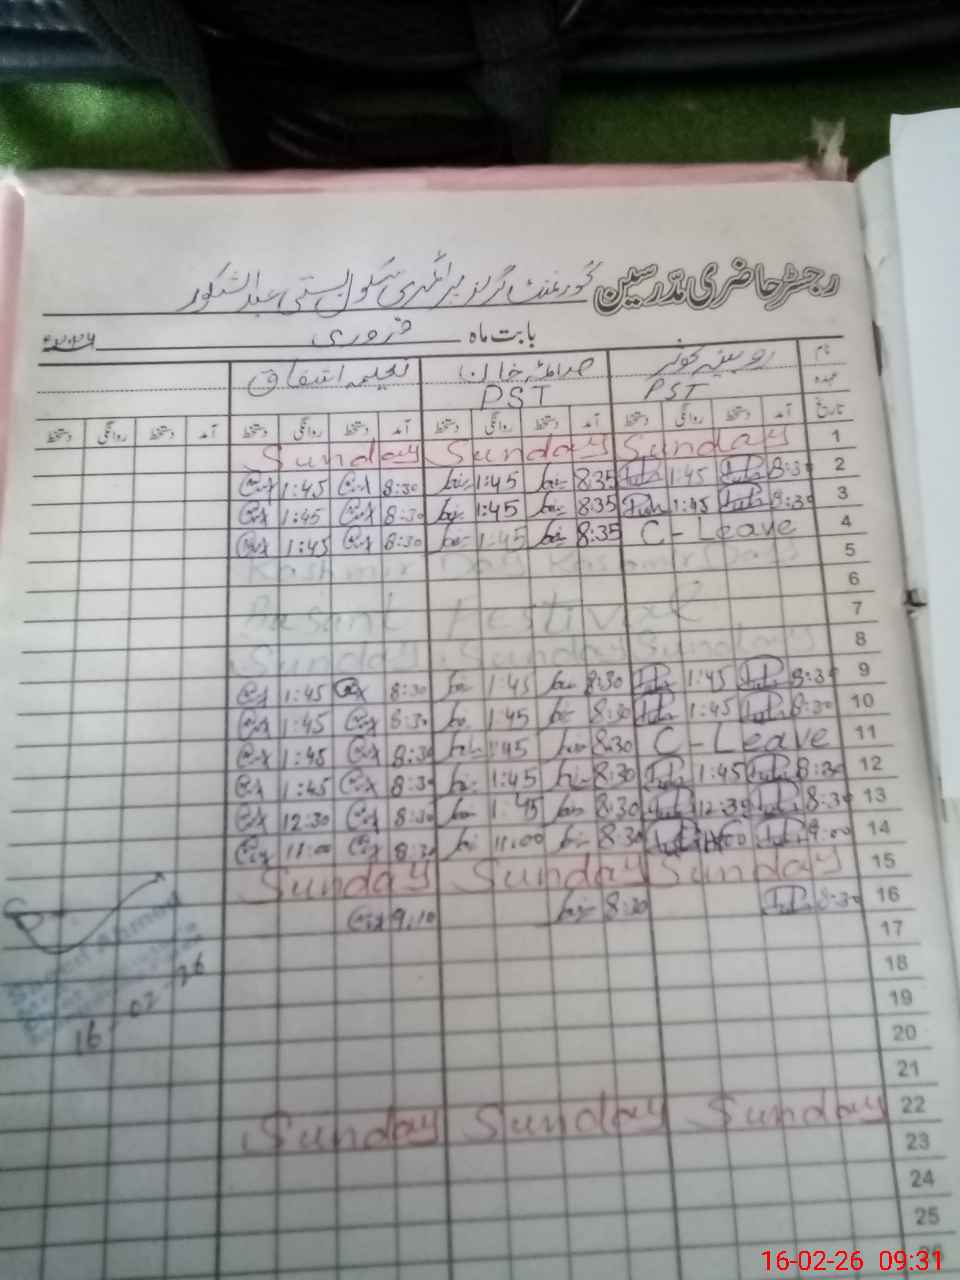 رجسٹر حاضری مدرسین گورنمنٹ گرلز پرائمری سکول بستی عبدالشکور
بابت ماہ فروری
نام روبینہ کوثر صائمہ خان
عہدہ PST PST
تاریخ آمد دستخط روانگی دستخط آمد دستخط روانگی دستخط آمد دستخط روانگی دستخط آمد دستخط روانگی دستخط
1 Sunday Sunday Sunday
2 8:30 1:45 8:35 1:45 8:30 1:45
3 8:30 1:45 8:35 1:45 8:30 1:45
4 C-Leave 8:35 1:45 8:30 1:45
5 Kashmir Day Kashmir Day
6
7 Basant Festival
8 Sunday Sunday Sunday
9 8:30 1:45 8:30 1:45 8:30 1:45
10 8:30 1:45 8:30 1:45 8:30 1:45
11 C-Leave 8:30 1:45 8:30 1:45
12 8:30 1:45 8:30 1:45 8:30 1:45
13 8:30 12:30 8:30 1:45 8:30 12:30
14 9:00 11:00 8:30 11:00 8:30 11:00
15 Sunday Sunday Sunday
16 8:30 8:30 9:10
17
18
19
20
21
22 Sunday Sunday Sunday
23
24
25
16-02-26
16-02-26 09:31